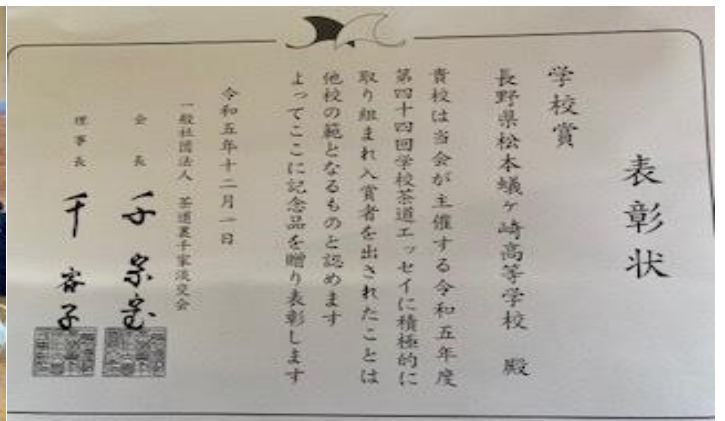 表彰状
学校賞
長野県松本蟻ケ崎高等学校 殿
貴校は当会が主催する令和五年度
第四十四回学校茶道エッセイに積極的に
取り組まれ入賞者を出されたことは
他校の範となるものと認めます
よってここに記念品を贈り表彰します
令和五年十二月一日
一般社団法人 茶道裏千家淡交会
会長 千 宗室
理事長 千 容子